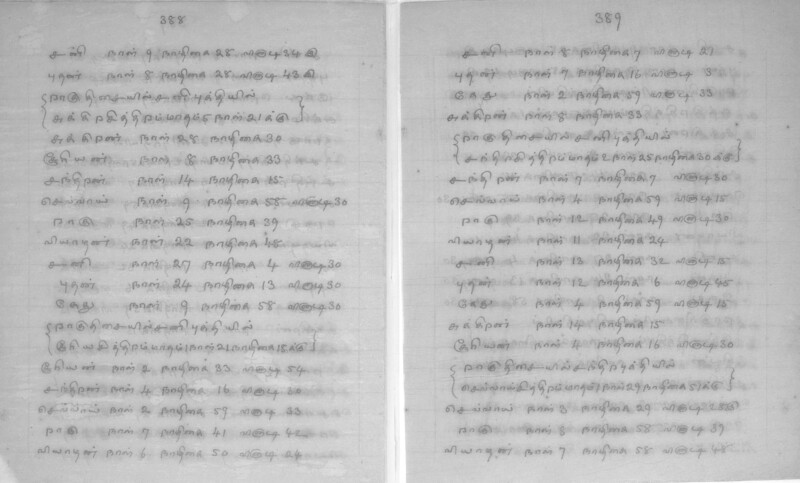 388
சனி நாள் 9 நாழிகை 28 வினாடி 34
புதன் நாள் 8 நாழிகை 28 வினாடி 43
ராகு திசையில் சனி புத்தியில்
சுக்கிரசித்திரம் மாதம் 5 நாள் 21க்கு
சுக்கிரன் நாள் 28 நாழிகை 30
சூரியன் நாள் 8 நாழிகை 33
சந்திரன் நாள் 14 நாழிகை 15
செவ்வாய் நாள் 9 நாழிகை 58 வினாடி 30
ராகு நாள் 25 நாழிகை 39
வியாழன் நாள் 22 நாழிகை 48
சனி நாள் 27 நாழிகை 4 வினாடி 30
புதன் நாள் 24 நாழிகை 13 வினாடி 30
கேது நாள் 9 நாழிகை 58 வினாடி 30
ராகு திசையில் சனி புத்தியில்
மாதம் 1 நாள் 21 நாழிகை 18க்கு
சூரியன் நாள் 2 நாழிகை 33 வினாடி 54
சந்திரன் நாள் 4 நாழிகை 16 வினாடி 30
செவ்வாய் நாள் 2 நாழிகை 59 வினாடி 33
ராகு நாள் 7 நாழிகை 41 வினாடி 42
வியாழன் நாள் 6 நாழிகை 50 வினாடி 24
389
சனி நாள் 8 நாழிகை 7 வினாடி 21
புதன் நாள் 7 நாழிகை 16 வினாடி 3
கேது நாள் 2 நாழிகை 59 வினாடி 33
சுக்கிரன் நாள் 8 நாழிகை 33
ராகு திசையில் சனி புத்தியில்
மாதம் 2 நாள் 25 நாழிகை 30க்கு
சந்திரன் நாள் 7 நாழிகை 7 வினாடி 30
செவ்வாய் நாள் 4 நாழிகை 59 வினாடி 15
ராகு நாள் 12 நாழிகை 49 வினாடி 30
வியாழன் நாள் 11 நாழிகை 24
சனி நாள் 13 நாழிகை 32 வினாடி 15
புதன் நாள் 12 நாழிகை 6 வினாடி 45
கேது நாள் 4 நாழிகை 59 வினாடி 15
சுக்கிரன் நாள் 14 நாழிகை 15
சூரியன் நாள் 4 நாழிகை 16 வினாடி 30
ராகு திசையில்
மாதம் 1 நாள் 29 நாழிகை 51க்கு
செவ்வாய் நாள் 3 நாழிகை 29 வினாடி
ராகு நாள் 8 நாழிகை 58 வினாடி 39
வியாழன் நாள் 7 நாழிகை 58 வினாடி 48